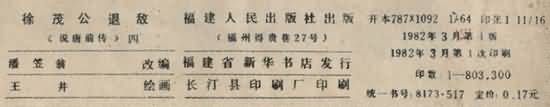 徐茂公退敌
《说唐前传》四
潘笠翁 改编
王井 绘画
福建人民出版社出版
（福州得贵巷27号）
福建省新华书店发行
长汀县印刷厂印刷
开本787×1092 1/64 印张1 11/16
1982年3月第1版
1982年3月第1次印刷
印数：1—803,300
统一书号：8173·517 定价：0.17元